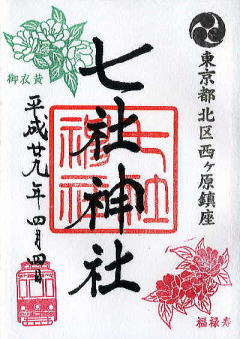 東京都北区西ヶ原鎮座
七社神社
七社神社
御衣黄
平成廿九年四月四日
福禄寿